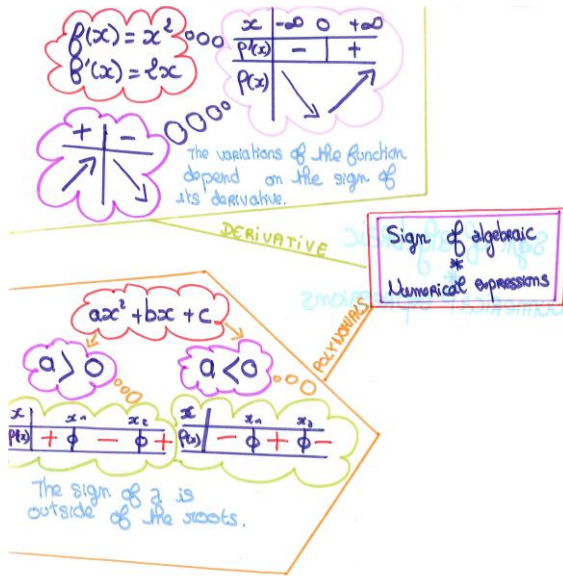 f(x) = x²
f'(x) = 2x
x -∞ 0 +∞
f'(x) - +
f(x)
+ -
The variations of the function
depend on the sign of
its derivative.
DERIVATIVE
Sign of algebraic
*
Numerical expressions
POLYNOMIALS
ax² + bx + c
a > 0
a < 0
x x₁ x₂
f(x) + 0 - 0 +
x x₁ x₂
f(x) - 0 + 0 -
The sign of a is
outside of the roots.